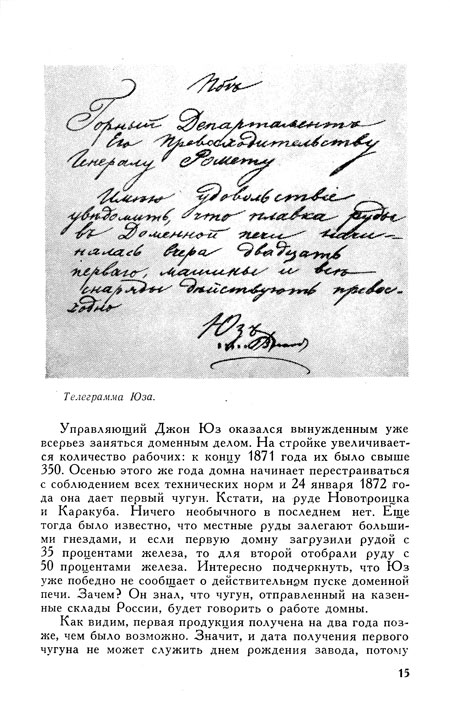 Пбъ
Горный Департаментъ
Его Превосходительству
Генералу Ромету
Имѣю удовольствіе
увѣдомить, что плавка руды
въ Доменной печи начи-
налась вчера двадцать
перваго, машины и всѣ
снаряды дѣйствуютъ превос-
ходно
Юзъ
Телеграмма Юза.
Управляющий Джон Юз оказался вынужденным уже
всерьез заняться доменным делом. На стройке увеличивает-
ся количество рабочих: к концу 1871 года их было свыше
350. Осенью этого же года домна начинает перестраиваться
с соблюдением всех технических норм и 24 января 1872 го-
да она дает первый чугун. Кстати, на руде Новотроицка
и Каракуба. Ничего необычного в последнем нет. Еще
тогда было известно, что местные руды залегают больши-
ми гнездами, и если первую домну загрузили рудой с
35 процентами железа, то для второй отобрали руду с
50 процентами железа. Интересно подчеркнуть, что Юз
уже победно не сообщает о действительном пуске доменной
печи. Зачем? Он знал, что чугун, отправленный на казен-
ные склады России, будет говорить о работе домны.
Как видим, первая продукция получена на два года поз-
же, чем было возможно. Значит, и дата получения первого
чугуна не может служить днем рождения завода, потому
15